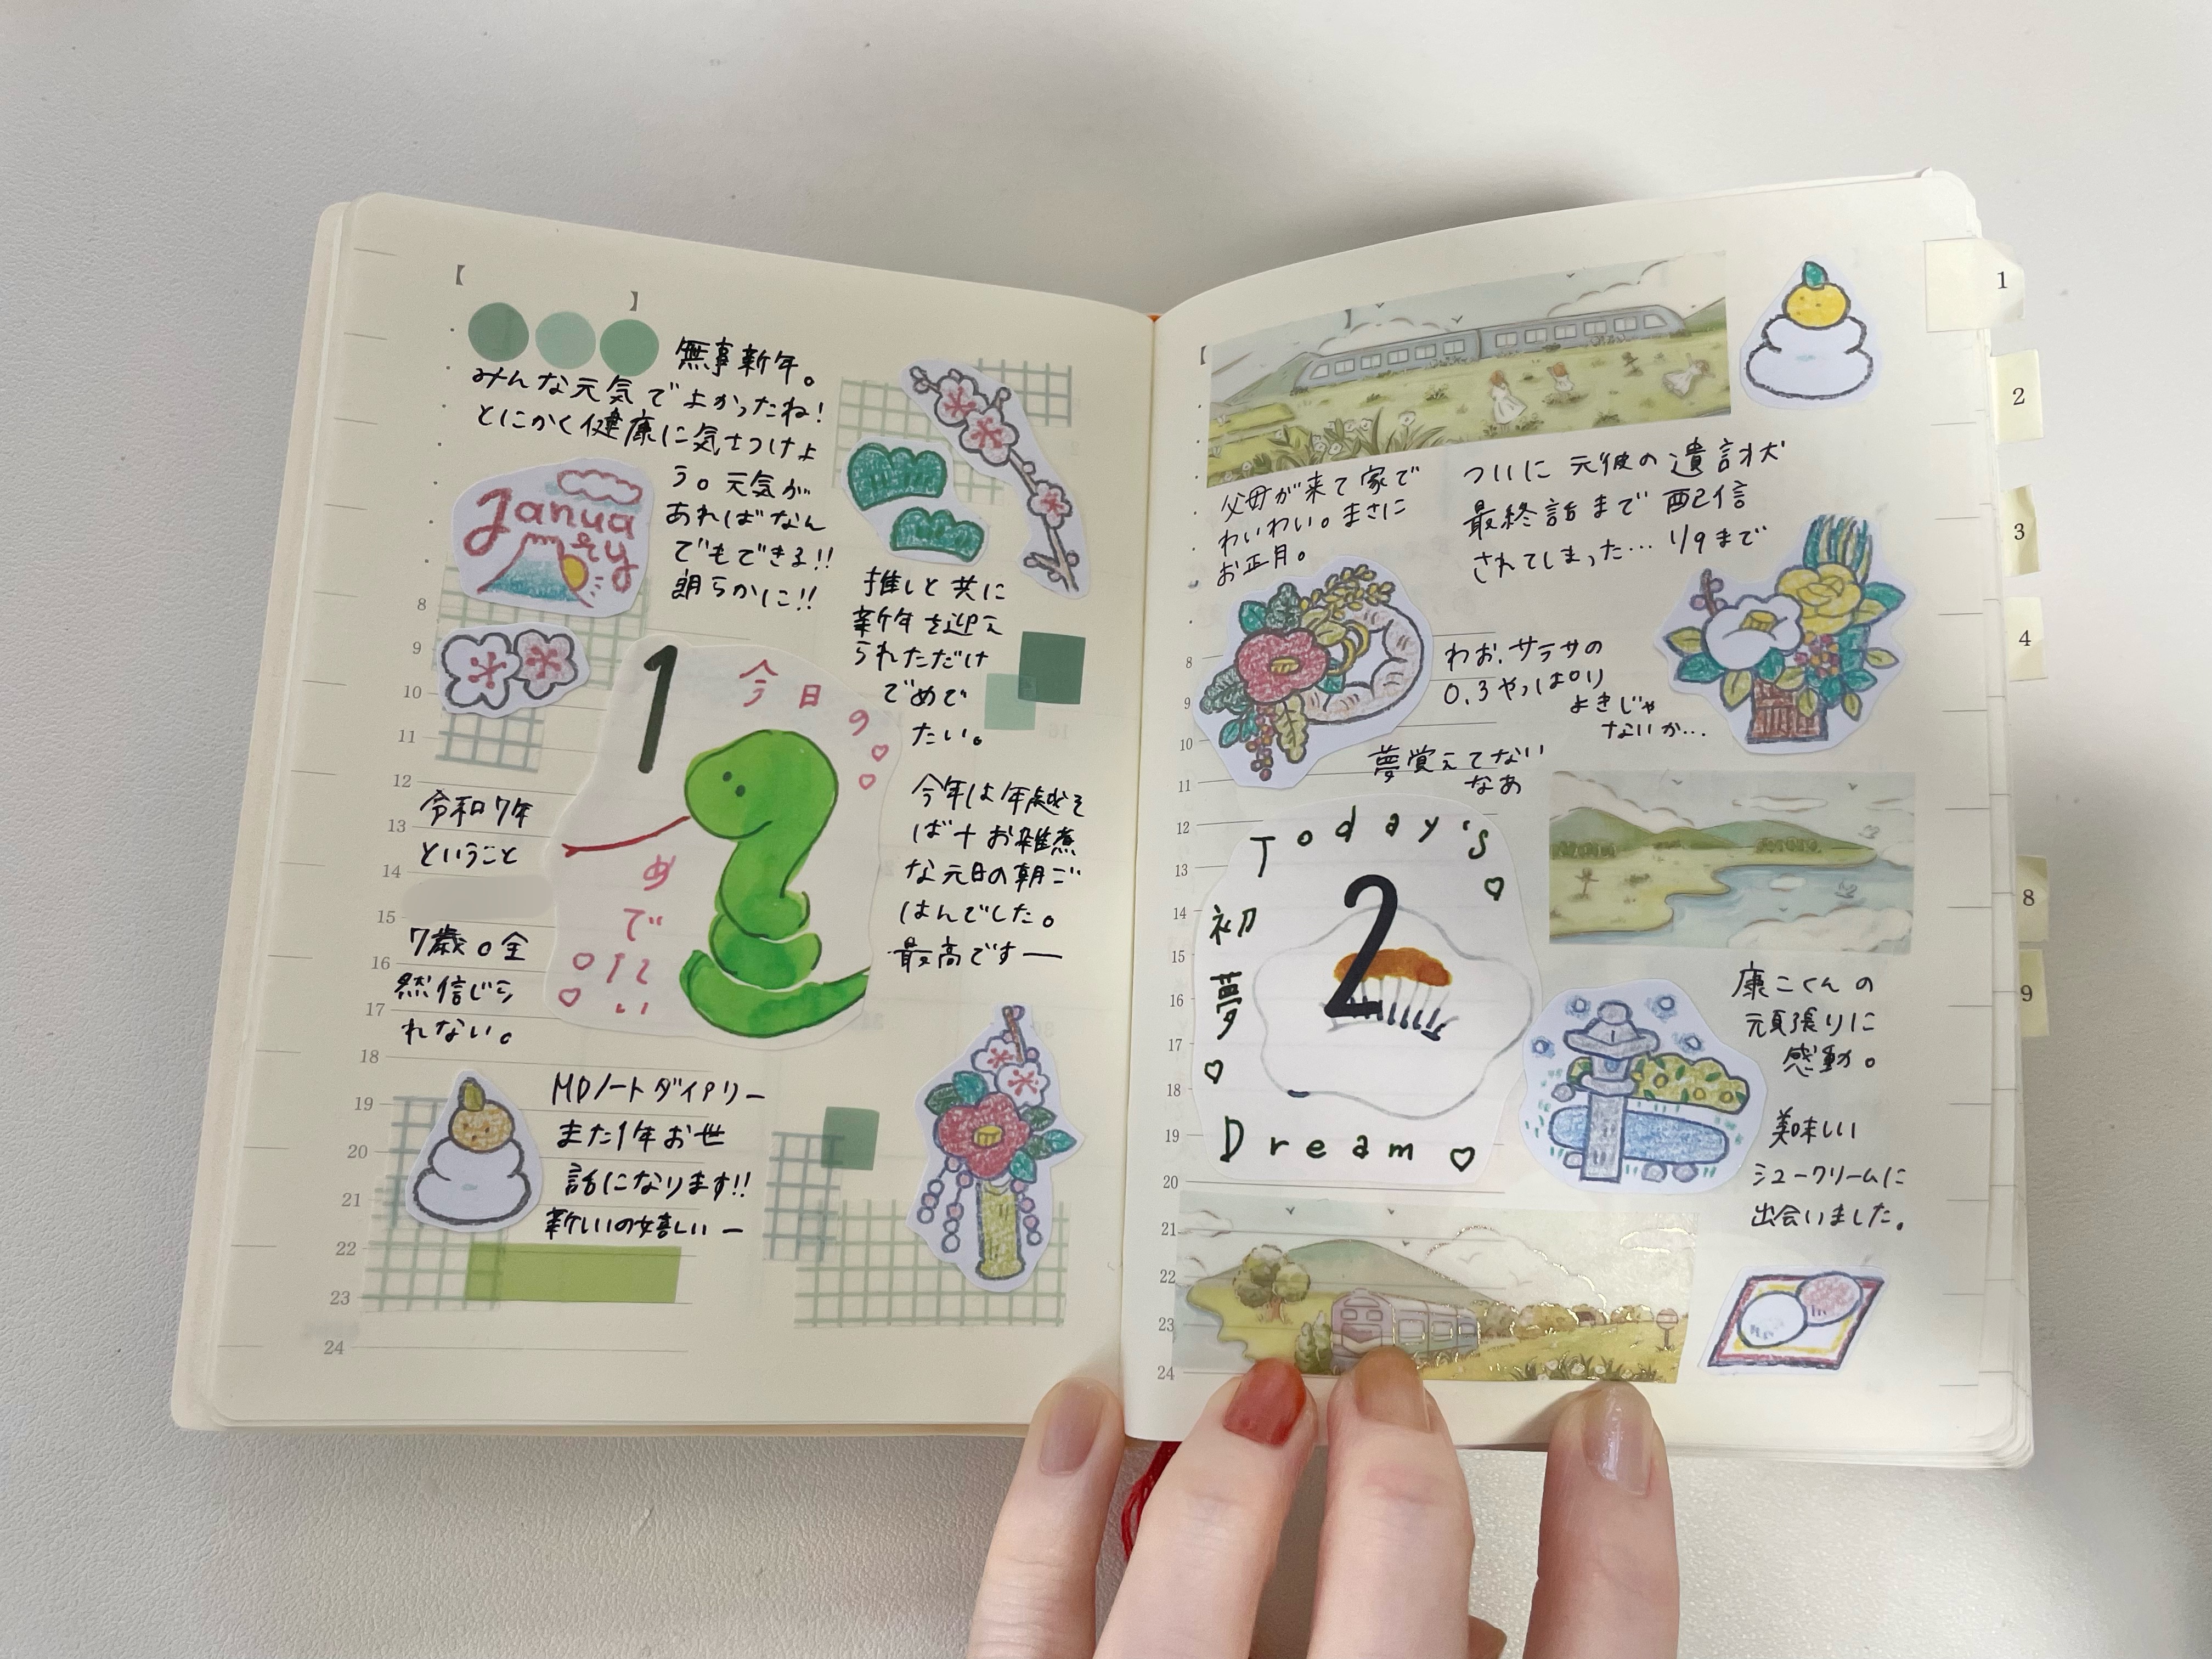 【
】
無事新年。
みんな元気でよかったね!
とにかく健康に気をつけよ
う。元気が
あればなん
でもできる!!
朗らかに!!
Janua
ry
推しと共に
新年を迎え
られただけ
でめで
たい。
1
今日の
めでたい
今年は年越そ
ば+お雑煮
な元日の朝ご
はんでした。
最高ですー
令和7年
ということ
7歳。全
然信じら
れない。
MDノートダイアリー
また1年お世
話になります!!
新しいの嬉しいー
8
9
10
11
12
13
14
15
16
17
18
19
20
21
22
23
24
【
父母が来て家で
わいわい。まさに
お正月。
ついに元彼の遺言状
最終話まで配信
されてしまった… 1/9まで
わお、サラサの
0.3やっぱり
よきじゃ
ないか…
夢覚えてない
なあ
Today's
2
初
夢
Dream
康二くんの
頑張りに
感動。
美味しい
シュークリームに
出会いました。
8
9
10
11
12
13
14
15
16
17
18
19
20
21
22
23
24
1
2
3
4
8
9